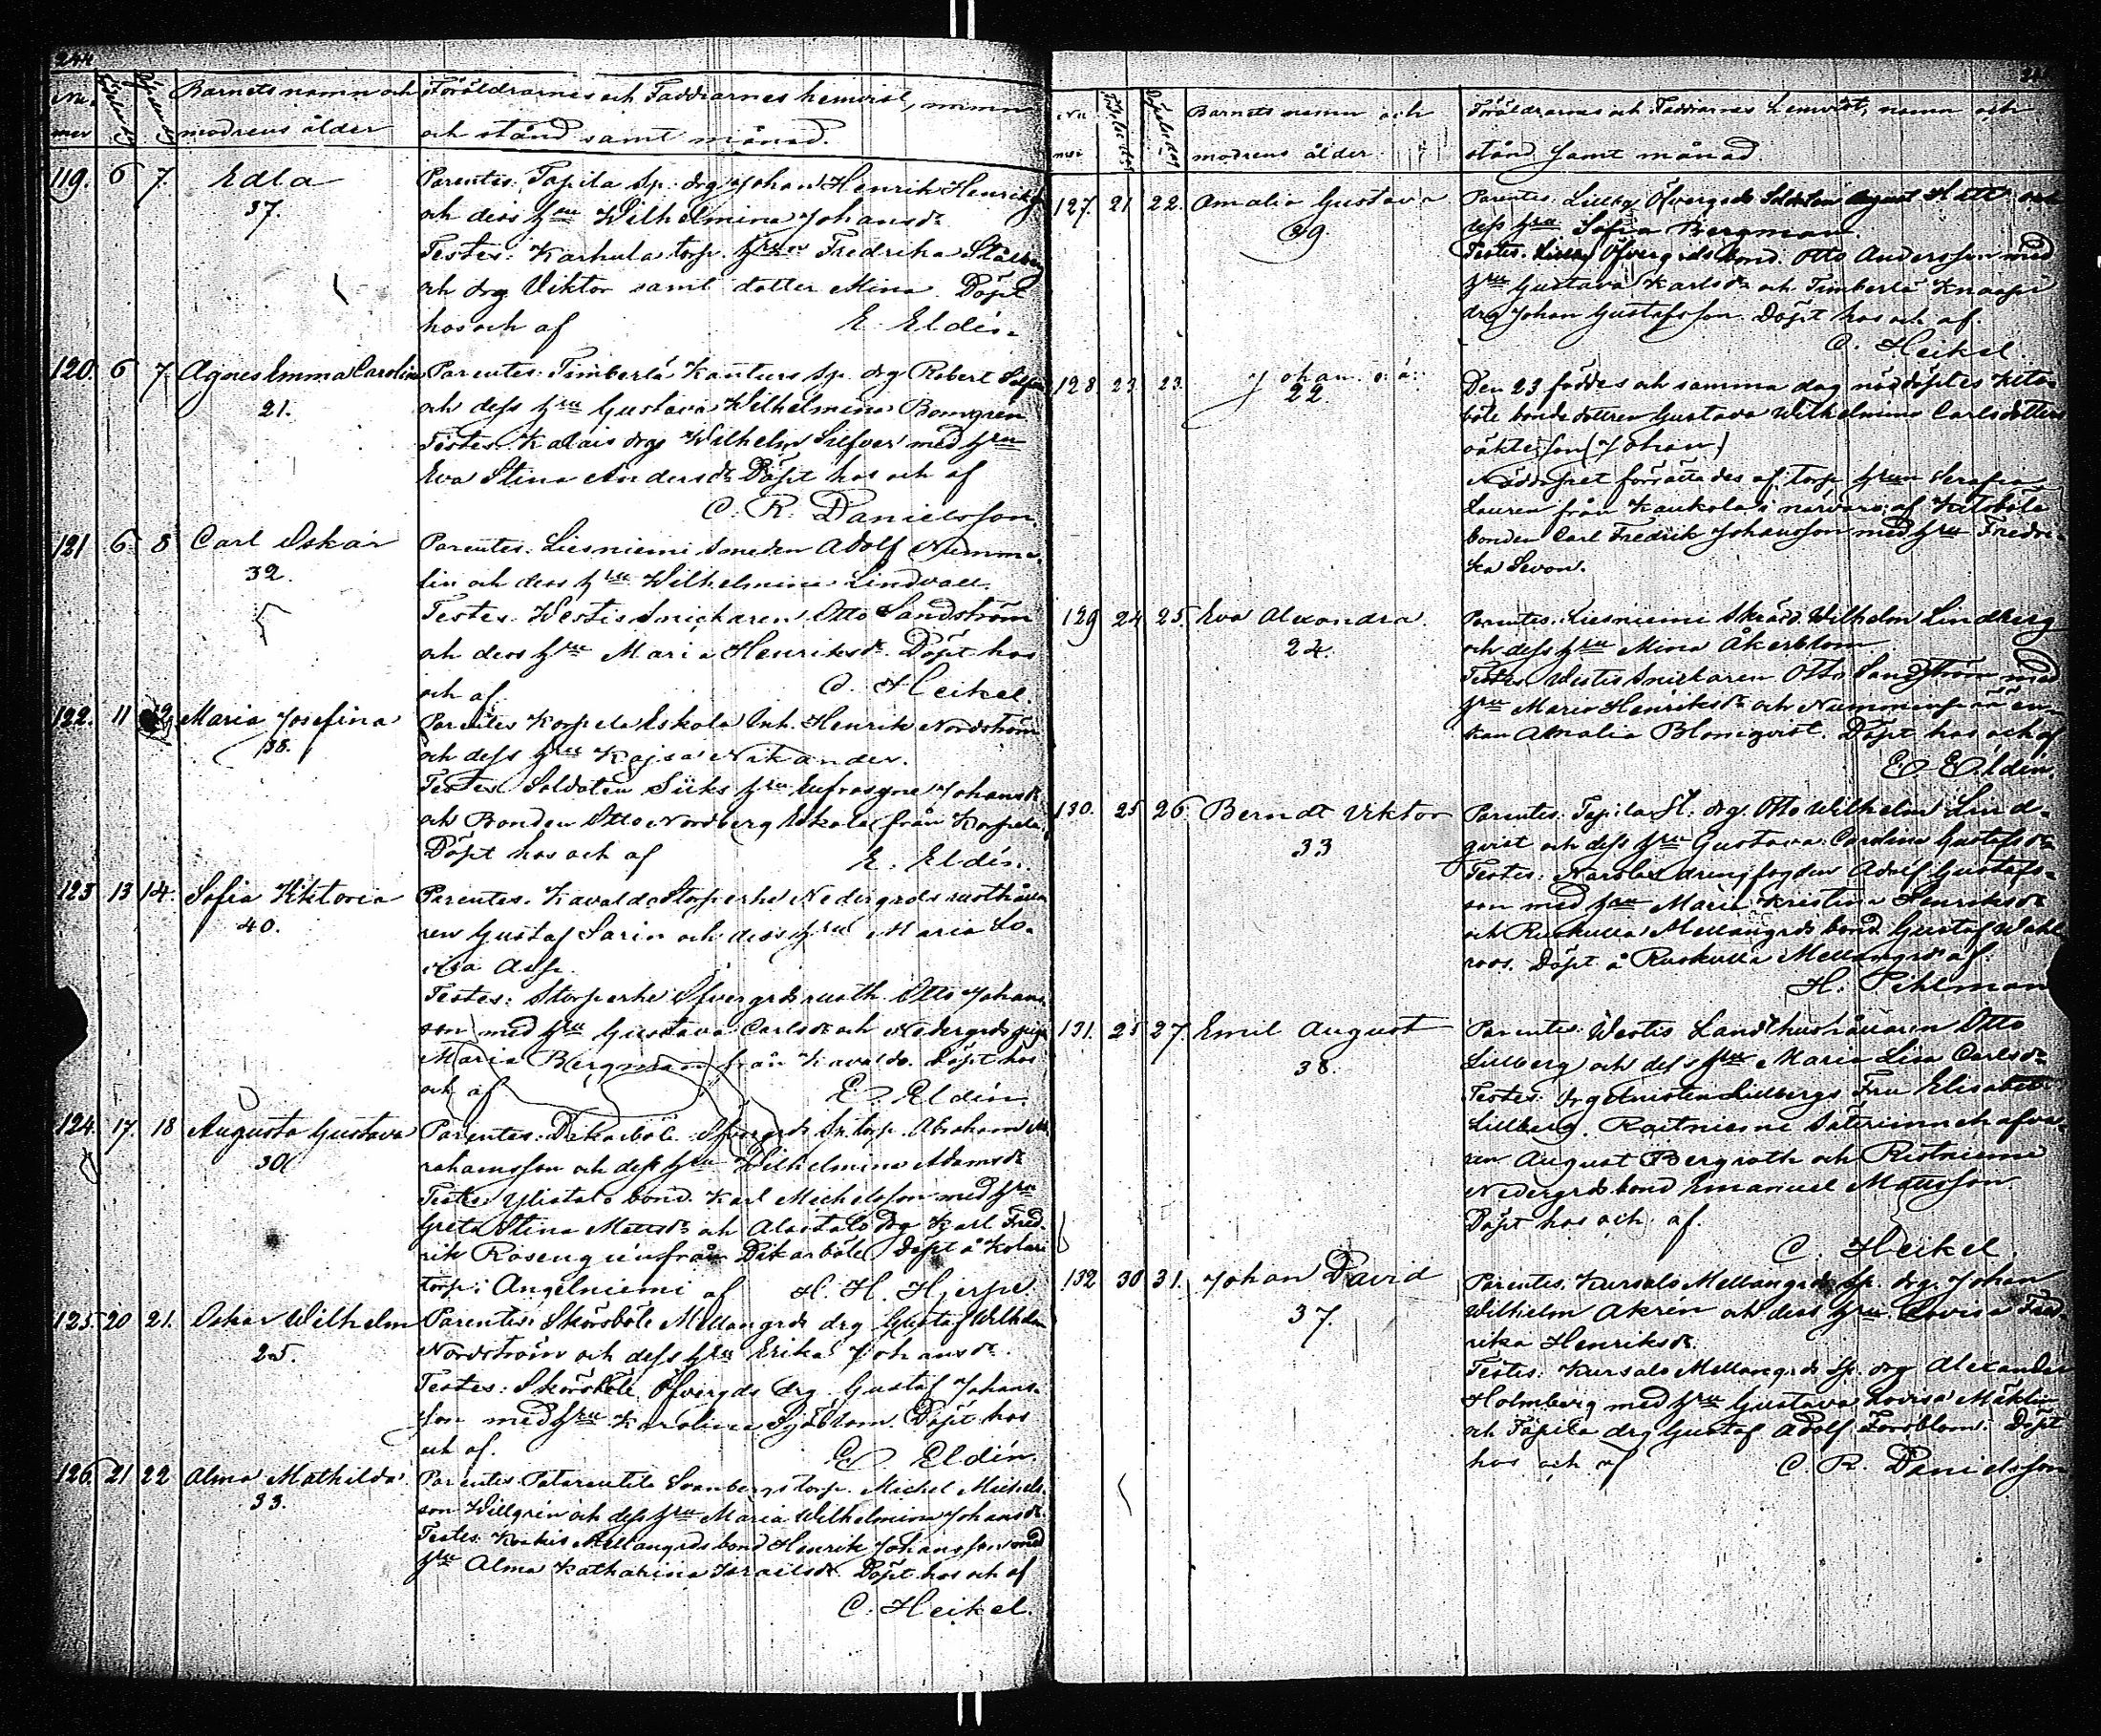 244
Nu- Födelsedag Döpelsedag Barnets namn och Föräldrarnes och Faddrarnes hemvist, namn
mer modrens ålder och stånd samt månad.
119. 6 7. Edla Parentes: Tapila Sp: drg Johan Henrik
37. och dess hru Wilhelmina Johansdr
Testes: Karkula torp. hrun Fredrika
och drg Viktor samt dotter Mina. Döpt
hos och af E. Eldén.
120. 6 7. Agnes Emma Carolina Parentes: Timberlä Kanturs Sp. drg Robert
21. och dess hru Gustava Wilhelmina Bomgren
Testes: Kalais drg Wilhelm Silfver med hru
Eva Stina Andersdr Döpt hos och af
C. R. Danielsson.
121 6 8 Carl Oskar Parentes: Liesniemi Smeden Adolf Numme-
32. lin och dess hru Wilhelmina Lindvall.
Testes: Westis Snickaren Otto Sandström
och dess hru Maria Henriksdr. Döpt hos
och af. C. Heikel.
122. 11 Maria Josefina Parentes Korpela Eskola Inh. Henrik Nordström
38. och dess hru Kajsa Nikander.
Testes Soldaten Siiks hru Eufrosyne Johansdr
och Bonden Otto Nordberg Eskola från Korpela
Döpt hos och af E. Eldén.
123 13 14. Sofia Viktoria Parentes. Kavalda Storperhe Nedergrds rusthålla-
40. ren Gustaf Sarin och dess hru Maria Lo-
visa
Testes: Storperhe Öfvergrds rusth. Otto Johans-
son med hru Gustava Carlsdr och Nedergrds piga
Maria Bergman från Kavalda. Döpt hos
och af E. Eldén.
124. 17. 18 Augusta Gustava Parentes: Dikarböle Öfvergrds Sp. torp. Abraham Ab-
30. rahamsson och dess hru Wilhelmina Adamsdr
Testes: Ylistalo bond. Karl Michelsson med hru
Greta Stina Mattsdr och Alastalo drg Karl Fred-
rik från Dikarböle Döpt å
torp i Angelniemi af H. H. Hjerpe.
125. 20 21. Oskar Wilhelm Parentes: Skörsböle Mellangrds drg Gustaf Wilhelm
25. Nordström och dess hru Erika Johansdr.
Testes: Skörsböle Öfvergds drg Gustaf Johans-
son med hru Karolina Sjöblom. Döpt hos
och af. E. Eldén.
126. 21 22 Alma Mathilda Parentes: Svanbergs torp. Michel Michels-
33. son Willgrén och dess hru Maria Wilhelmina Johansdr
Testes: Koskis Mellangrds bond Henrik Johansson med
hru Alma Katharina Israelsdr. Döpt hos och af
C. Heikel.
Nu- Födelsedag Döpelsedag Barnets namn och Föräldrarnes och Faddrarnes hemvist, namn och
mer modrens ålder stånd samt månad.
127. 21 22. Amalia Gustava Parentes. Lillby Öfvergds Soldaten August och
39. dess hru Sofia Bergman.
Testes. Lillby Öfvergrds bond. Otto Andersson med
hru Gustava Karlsdr och Timberla Knaapi
drg Johan Gustafsson. Döpt hos och af.
C. Heikel.
128. 23 23. Johan. o. ä: Den 23 föddes och samma dag nöddöptes Keto-
22. böle bonde dottren Gustava Wilhelmina Carlsdotters
oäkta son (Johan)
Nöddopet förrättades af torp. hrun Serafia
Lauren från Kaukola i närvaro af Ketoböle
bonden Carl Fredrik Johansson med hru Fredri-
ka Sevon.
129 24 25. Eva Alexandra Parentes: Liesniemi Skräd. Wilhelm Lindberg
24. och dess hru Mina Åkerblom
Testes Westis Snickaren Otto Sandström med
hru Maria Henriksdr och en-
kan Amalia Blomqvist. Döpt hos och af
E. Eldén.
130. 25 26 Berndt Viktor Parentes: Tapila drg. Otto Wilhelm Lind-
33 qvist och dess hru Gustava Carolina Gustafsdr
Testes: drengfogden Adolf Gustafs-
son med hru Maria Kristina Henriksdr
och Ruskulla Mellangrds bond Gustaf Wahl-
roos. Döpt å Ruskulla Mellangrd af.
H. Pihlman
131. 25 27. Emil August Parentes: Westis Landthushållaren Otto
38. Lillberg och dess hru Maria Lisa Carlsdr
Testes: Lillbergs Fru Elisabet
Lillberg. Raitniemi Säteriinnehafva-
ren August Bergroth och Ristniemi
Nedergrds bond Emanuel Mattsson
Döpt hos och af.
C. Heikel.
132 30 31. Johan David Parentes. Kursala Mellangrds Sp. drg. Johan
37. Wilhelm Akrén och dess hru Lovisa Fred-
rika Henriksdr.
Testes: Kursala Mellangrds Sp. drg Alexander
Holmberg med hru Gustava Lovisa Mäklin
och Tapila drg Gustaf Adolf Forsblom. Döpt
hos och af C. R. Danielsson